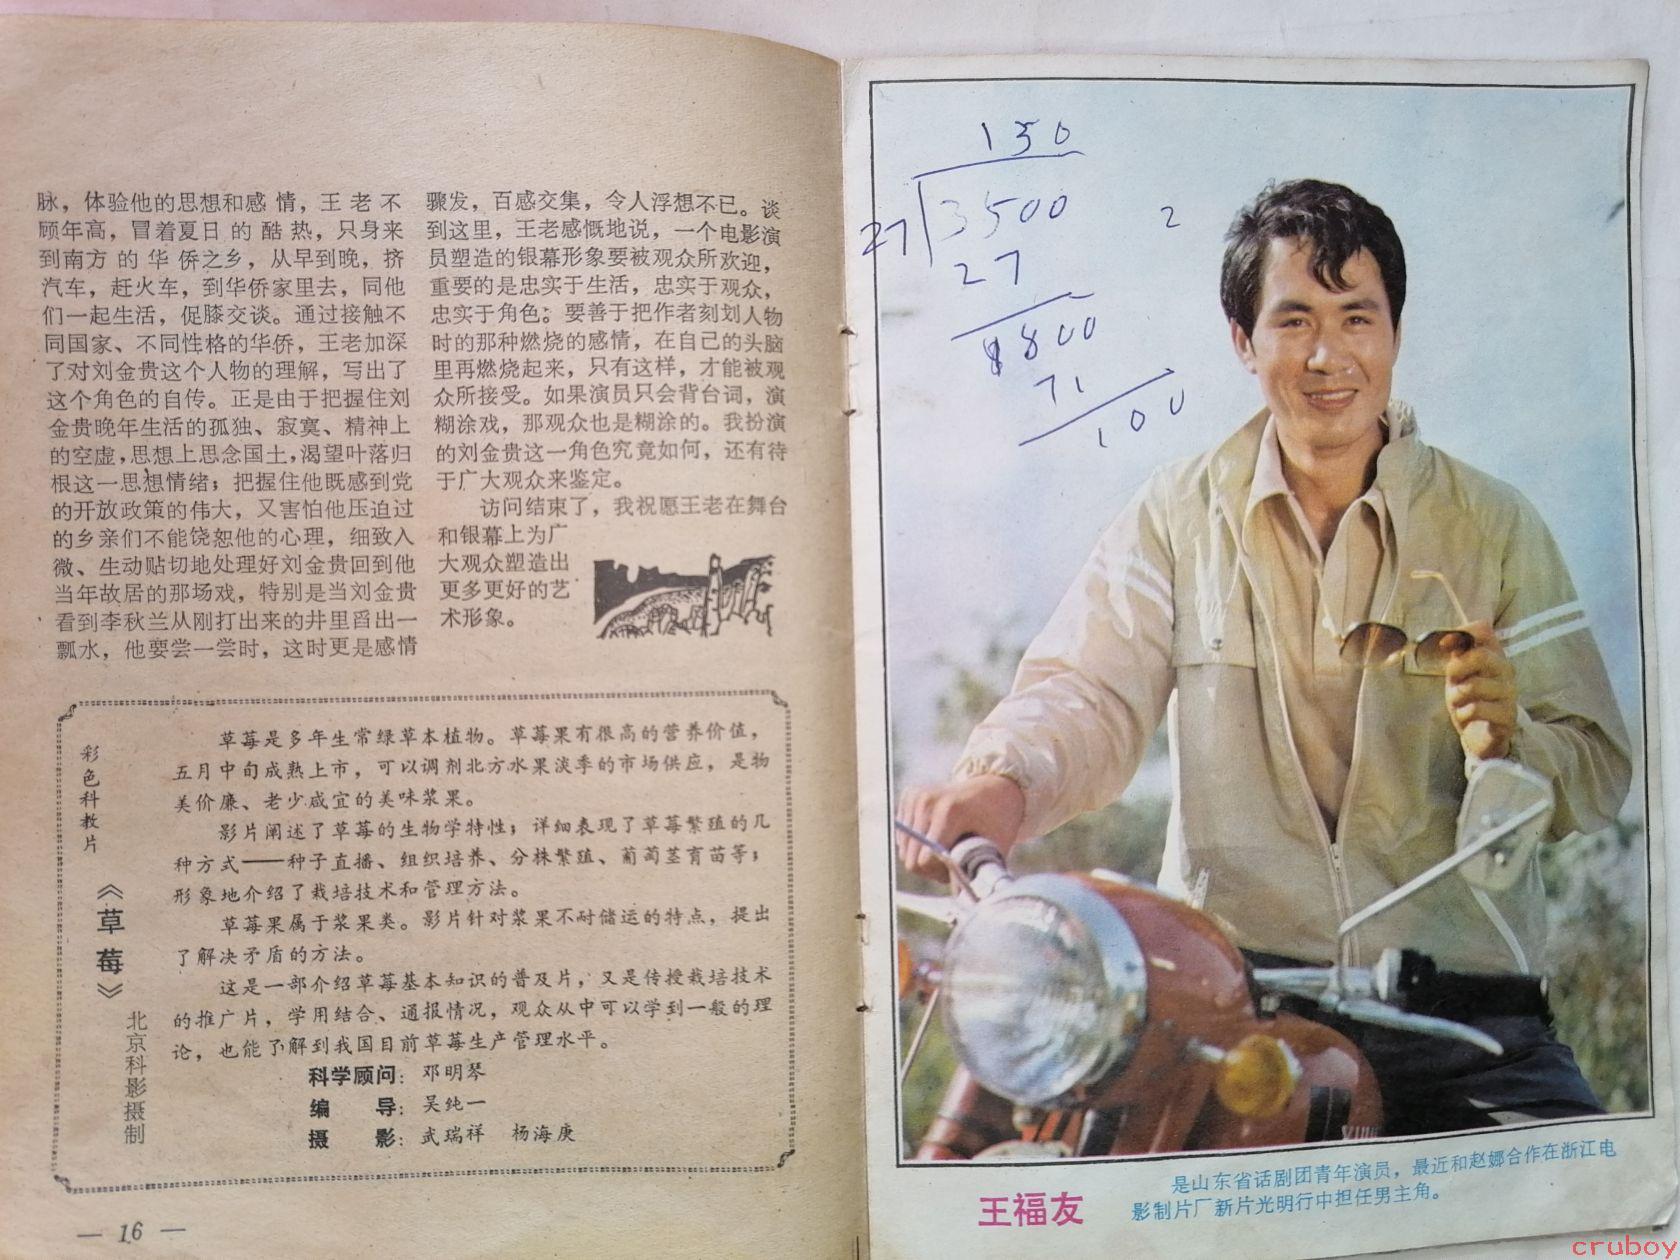 脉，体验他的思想和感情，王老不
顾年高，冒着夏日的酷热，只身来
到南方的华侨之乡，从早到晚，挤
汽车，赶火车，到华侨家里去，同他
们一起生活，促膝交谈。通过接触不
同国家、不同性格的华侨，王老加深
了对刘金贵这个人物的理解，写出了
这个角色的自传。正是由于把握住刘
金贵晚年生活的孤独、寂寞、精神上
的空虚，思想上思念国土，渴望叶落归
根这一思想情绪；把握住他既感到党
的开放政策的伟大，又害怕他压迫过
的乡亲们不能饶恕他的心理，细致入
微、生动贴切地处理好刘金贵回到他
当年故居的那场戏，特别是当刘金贵
看到李秋兰从刚打出来的井里舀出一
瓢水，他要尝一尝时，这时更是感情
骤发，百感交集，令人浮想不已。谈
到这里，王老感慨地说，一个电影演
员塑造的银幕形象要被观众所欢迎，
重要的是忠实于生活，忠实于观众，
忠实于角色；要善于把作者刻划人物
时的那种燃烧的感情，在自己的头脑
里再燃烧起来，只有这样，才能被观
众所接受。如果演员只会背台词，演
糊涂戏，那观众也是糊涂的。我扮演
的刘金贵这一角色究竟如何，还有待
于广大观众来鉴定。
访问结束了，我祝愿王老在舞台
和银幕上为广
大观众塑造出
更多更好的艺
术形象。
彩色科教片
《草莓》
北京科影摄制
草莓是多年生常绿草本植物。草莓果有很高的营养价值，
五月中旬成熟上市，可以调剂北方水果淡季的市场供应，是物
美价廉、老少咸宜的美味浆果。
影片阐述了草莓的生物学特性；详细表现了草莓繁殖的几
种方式——种子直播、组织培养、分株繁殖、葡萄茎育苗等；
形象地介绍了栽培技术和管理方法。
草莓果属于浆果类。影片针对浆果不耐储运的特点，提出
了解决矛盾的方法。
这是一部介绍草莓基本知识的普及片，又是传授栽培技术
的推广片，学用结合、通报情况，观众从中可以学到一般的理
论，也能了解到我国目前草莓生产管理水平。
科学顾问：邓明琴
编　导：吴纯一
摄　影：武瑞祥　杨海庚
— 16 —
130
27 3500 2
27
800
71
100
王福友
是山东省话剧团青年演员，最近和赵娜合作在浙江电
影制片厂新片光明行中担任男主角。
cruboy